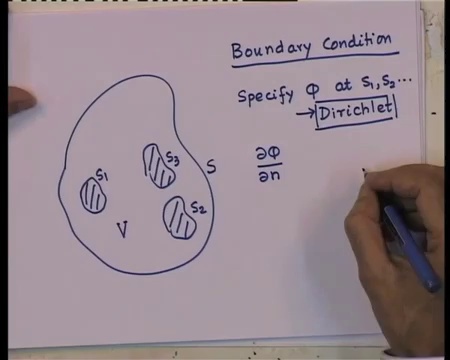 Boundary Condition
Specify Φ at S₁, S₂...
→ Dirichlet
∂Φ
∂n
S₁
S₃
S
S₂
V